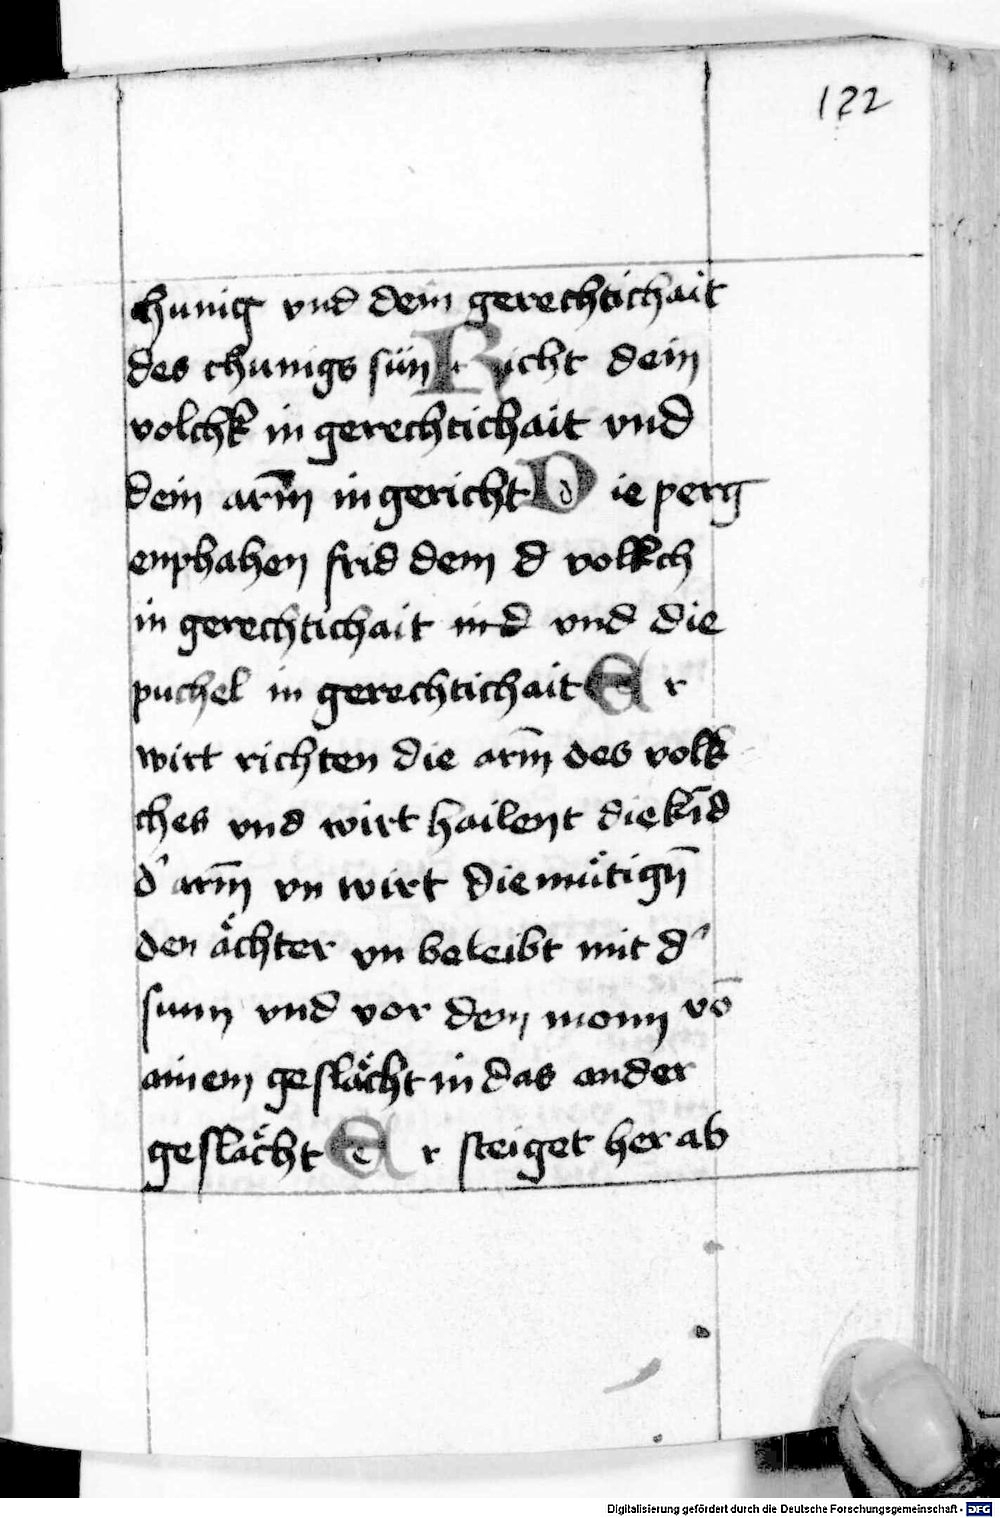 122
chunig vnd dein gerechtichait
des chunigs sün Richt dein
volchk in gerechtichait vnd
dein arm̄ in gericht Die perg
enphahen frid dem d volkch
in gerechtichait in d vnd die
puchel in gerechtichait Er
wirt richten die arm̄ des volk
ches vnd wirt hailent die kīd
d' arm̄ vn wirt diemüͤtign̄
den aͤchter vn beleibt mit d'
sunn vnd vor dem monn vō
ainem geslaͤcht in das ander
geslaͤcht Er steiget her ab
Digitalisierung gefördert durch die Deutsche Forschungsgemeinschaft - DFG